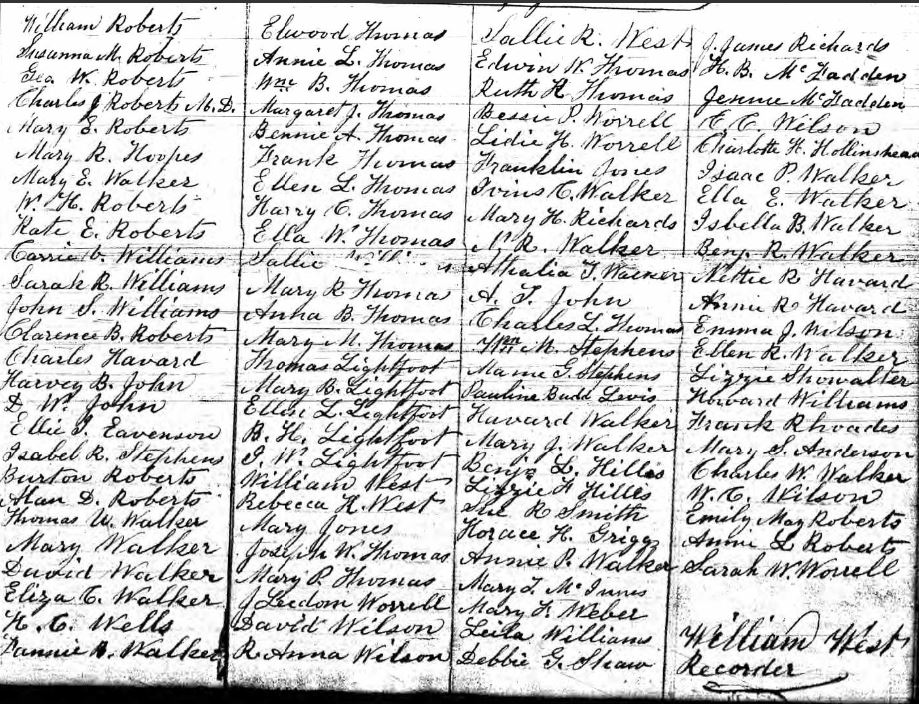 William Roberts
Susanna M. Roberts
Geo W. Roberts
Charles J. Roberts M.D.
Mary E. Roberts
Mary R. Hoopes
Mary E. Walker
W. H. Roberts
Kate E. Roberts
Carrie V. Williams
Sarah R. Williams
John S. Williams
Clarence B. Roberts
Charles Havard
Harvey B. John
D. W. John
Ellie J. Eavenson
Isabel R. Stephens
Burton Roberts
Alan D. Roberts
Thomas W. Walker
Mary Walker
David Walker
Eliza C. Walker
H. C. Wells
Fannie B. Walker
Elwood Thomas
Annie L. Thomas
Wm B. Thomas
Margaret J. Thomas
Bennie A. Thomas
Frank Thomas
Ellen L. Thomas
Harry C. Thomas
Ella W. Thomas
Sallie
Mary R Thomas
Anna B. Thomas
Mary M. Thomas
Thomas Lightfoot
Mary B. Lightfoot
Ellen L. Lightfoot
B. H. Lightfoot
J. W. Lightfoot
William West
Rebecca H. West
Mary Jones
Joseph W. Thomas
Mary P. Thomas
J Leedom Worrell
David Wilson
R. Anna Wilson
Sallie R. West
Edwin W. Thomas
Ruth H Thomas
Bessie P. Worrell
Lidie H. Worrell
Franklin Jones
Ivins C. Walker
Mary H. Richards
M. R. Walker
Athalia J. Warner
A. J. John
Charles L. Thomas
Wm N. Stephens
Mamie G. Stephens
Pauline Budd Levis
Havard Walker
Mary J. Walker
Benj. L. Hilles
Lizzie F. Hilles
Sue R Smith
Horace H. Grigg
Annie P. Walker
Mary T. McInnes
Mary F. Weber
Leila Williams
Debbie G. Shaw
J. James Richards
H. B. McFadden
Jennie McFadden
E. C. Wilson
Charlotte H. Hollinshead
Isaac P. Walker
Ella E. Walker
Isbella B. Walker
Benj. R. Walker
Nettie R Havard
Annie R Havard
Emma J. Wilson
Ellen R. Walker
Lizzie Showalter
Howard Williams
Frank Rhoades
Mary S. Anderson
Charles W. Walker
W. C. Wilson
Emily May Roberts
Annie L Roberts
Sarah W. Worrell
William West
Recorder